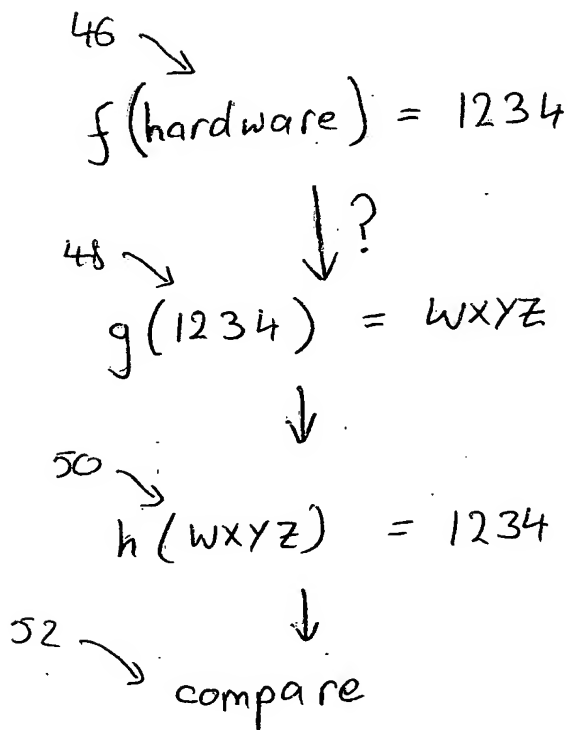 46
f(hardware) = 1234
?
48
g(1234) = WXYZ
50
h(WXYZ) = 1234
52
compare